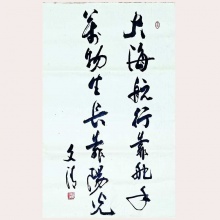 大海航行靠舵手
萬物生長靠陽光